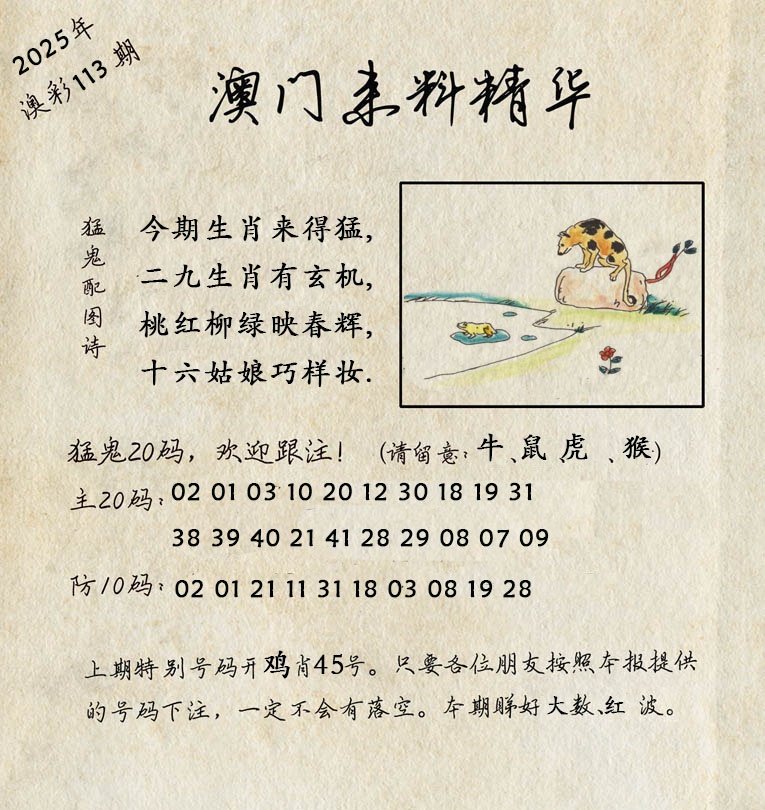 2025年
澳彩113期
澳门来料精华
猛鬼配图诗
今期生肖来得猛,
二九生肖有玄机,
桃红柳绿映春辉,
十六姑娘巧样妆.
猛鬼20码，欢迎跟注！（请留意：牛、鼠、虎、猴）
主20码：02 01 03 10 20 12 30 18 19 31
38 39 40 21 41 28 29 08 07 09
防10码：02 01 21 11 31 18 03 08 19 28
上期特别号码开鸡肖45号。只要各位朋友按照本报提供
的号码下注，一定不会有落空。本期睇好大数、红波。